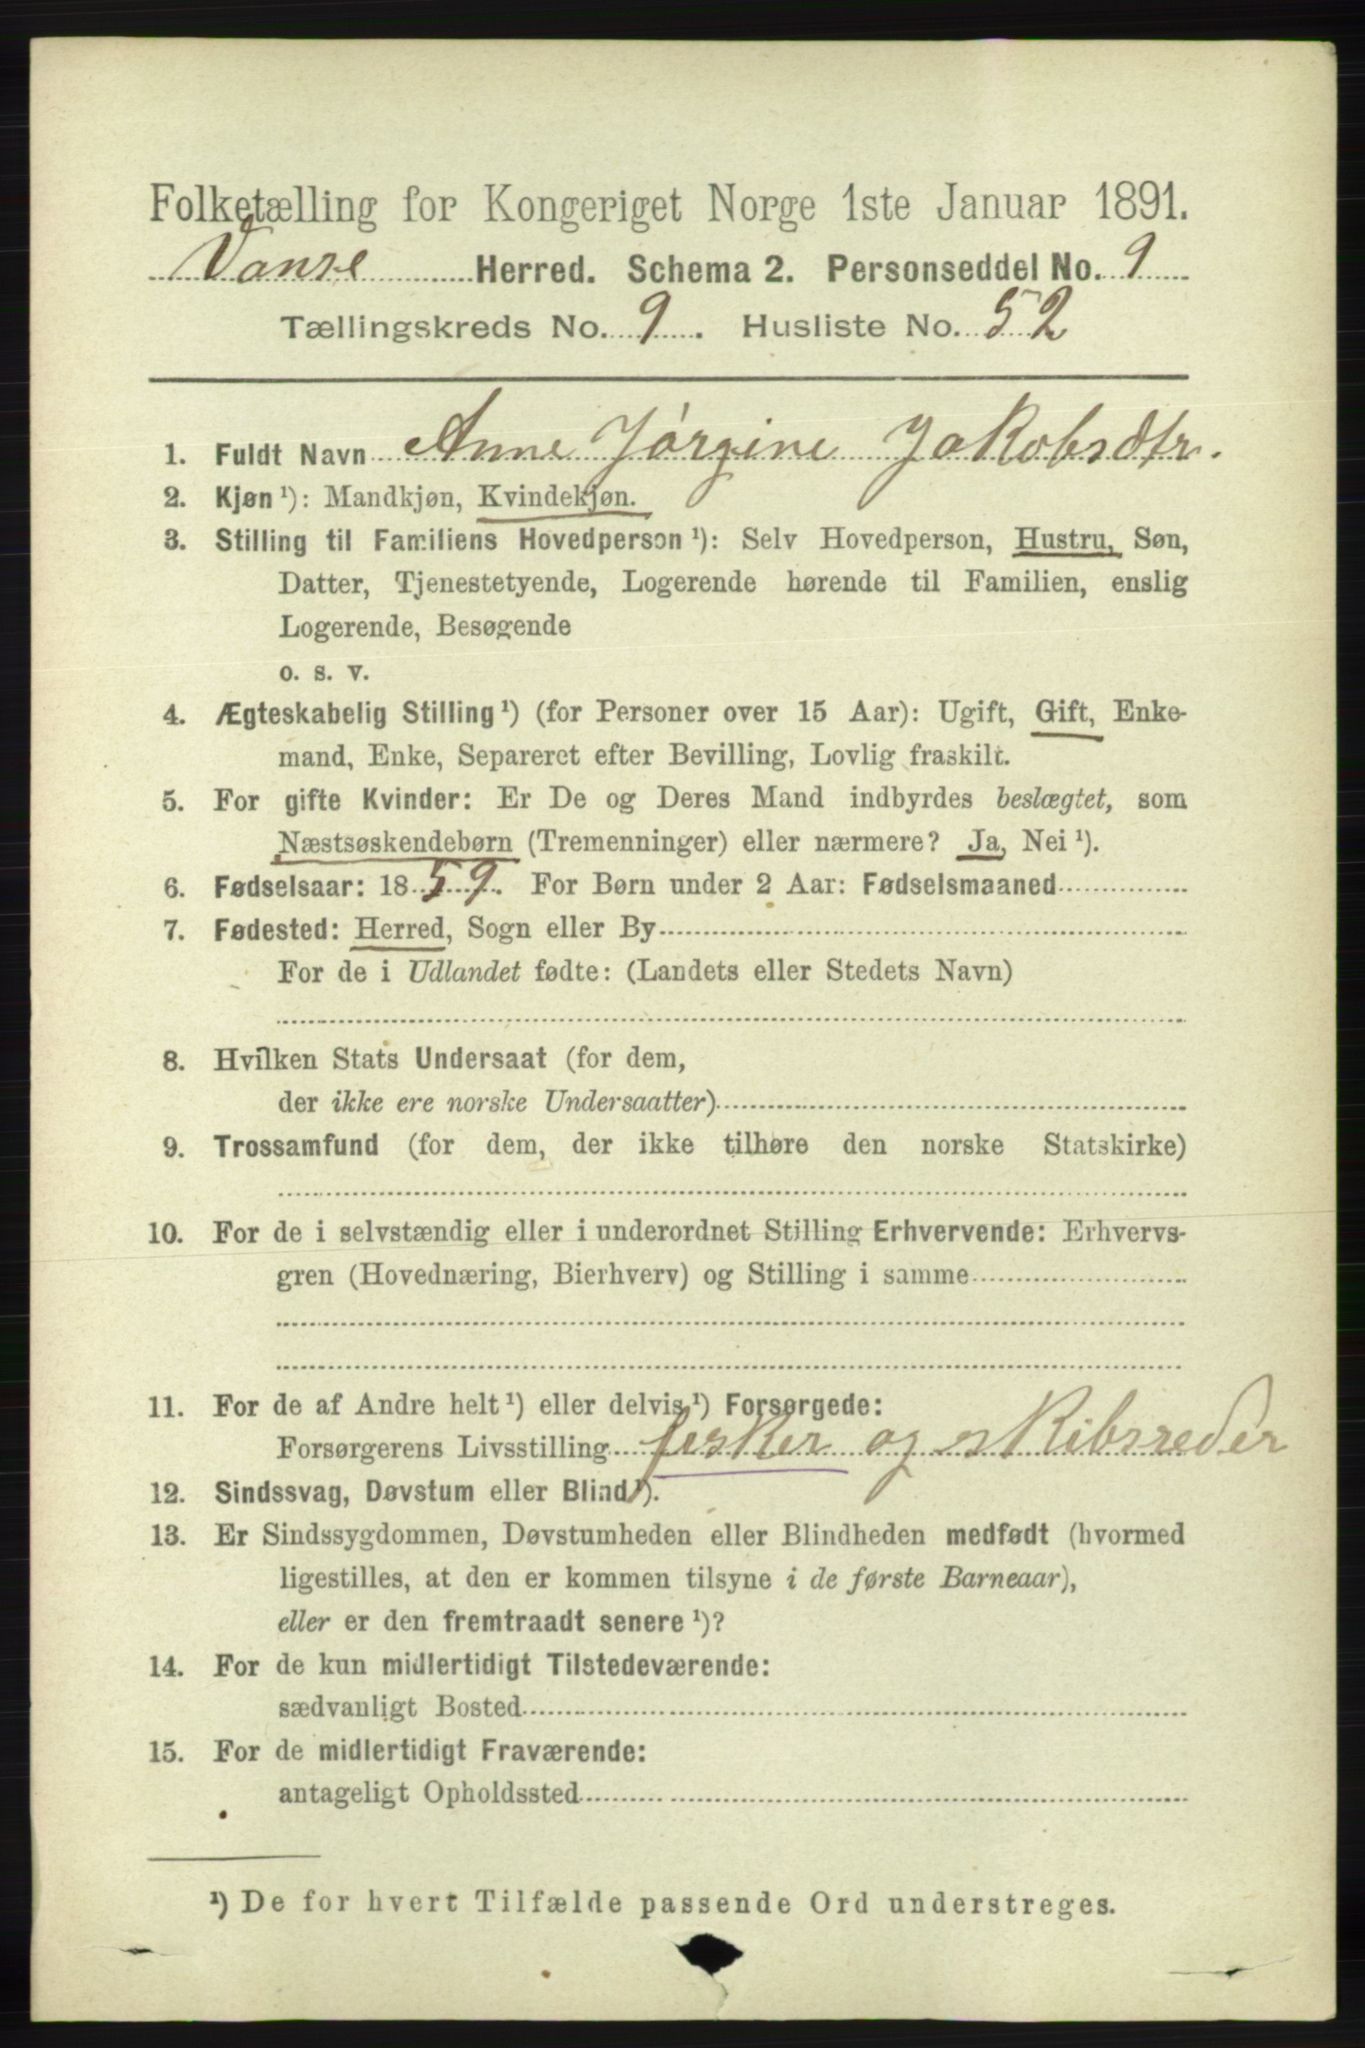 Folketælling for Kongeriget Norge 1ste Januar 1891.
Vanse Herred. Schema 2. Personseddel No. 9
Tællingskreds No. 9. Husliste No. 52
1. Fuldt Navn Anne Jørgine Jakobsdtr.
2. Kjøn ¹): Mandkjøn, Kvindekjøn.
3. Stilling til Familiens Hovedperson ¹): Selv Hovedperson, Hustru, Søn,
Datter, Tjenestetyende, Logerende hørende til Familien, enslig
Logerende, Besøgende
o. s. v.
4. Ægteskabelig Stilling ¹) (for Personer over 15 Aar): Ugift, Gift, Enke-
mand, Enke, Separeret efter Bevilling, Lovlig fraskilt.
5. For gifte Kvinder: Er De og Deres Mand indbyrdes beslægtet, som
Næstsøskendebørn (Tremenninger) eller nærmere? Ja, Nei ¹).
6. Fødselsaar: 1859. For Børn under 2 Aar: Fødselsmaaned
7. Fødested: Herred, Sogn eller By
For de i Udlandet fødte: (Landets eller Stedets Navn)
8. Hvilken Stats Undersaat (for dem,
der ikke ere norske Undersaatter)
9. Trossamfund (for dem, der ikke tilhøre den norske Statskirke)
10. For de i selvstændig eller i underordnet Stilling Erhvervende: Erhvervs-
gren (Hovednæring, Bierhverv) og Stilling i samme
11. For de af Andre helt ¹) eller delvis ¹) Forsørgede:
Forsørgerens Livsstilling fisker og skibsreder
12. Sindssvag, Døvstum eller Blind ¹).
13. Er Sindssygdommen, Døvstumheden eller Blindheden medfødt (hvormed
ligestilles, at den er kommen tilsyne i de første Barneaar),
eller er den fremtraadt senere ¹)?
14. For de kun midlertidigt Tilstedeværende:
sædvanligt Bosted
15. For de midlertidigt Fraværende:
antageligt Opholdssted
¹) De for hvert Tilfælde passende Ord understreges.